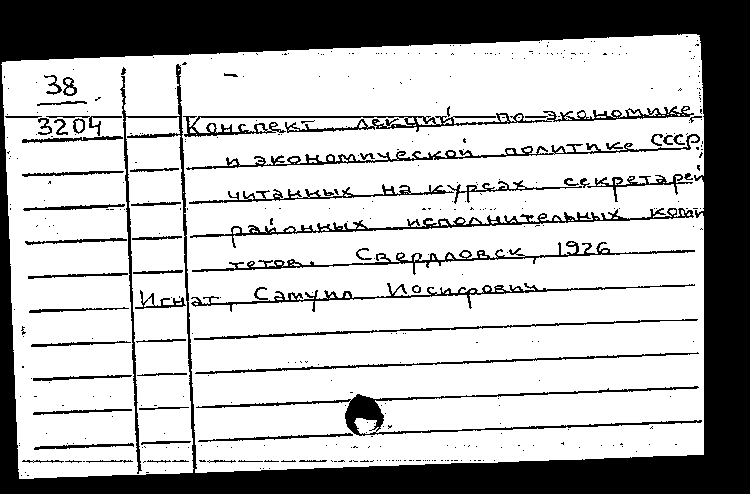 38
3204
Конспект лекций по экономике
и экономической политике СССР,
читанных на курсах секретарей
районных исполнительных коми
тетов. Свердловск, 1926
Игнат, Самуил Иосифович.